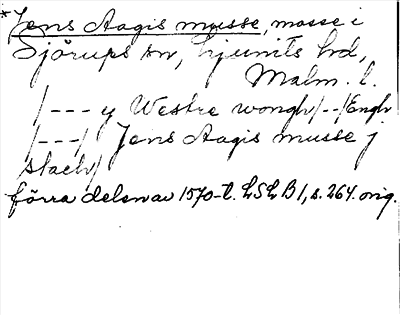 *Jens Aagis musse, mosse i
Sjörups sn, Ljunits hd,
Malm. l.
/--- y Westre wongh/--/Engh
/---/ Jens Aagis musse j
staeh/
förra delen av 1570-t. LSLB1, s. 264. orig.